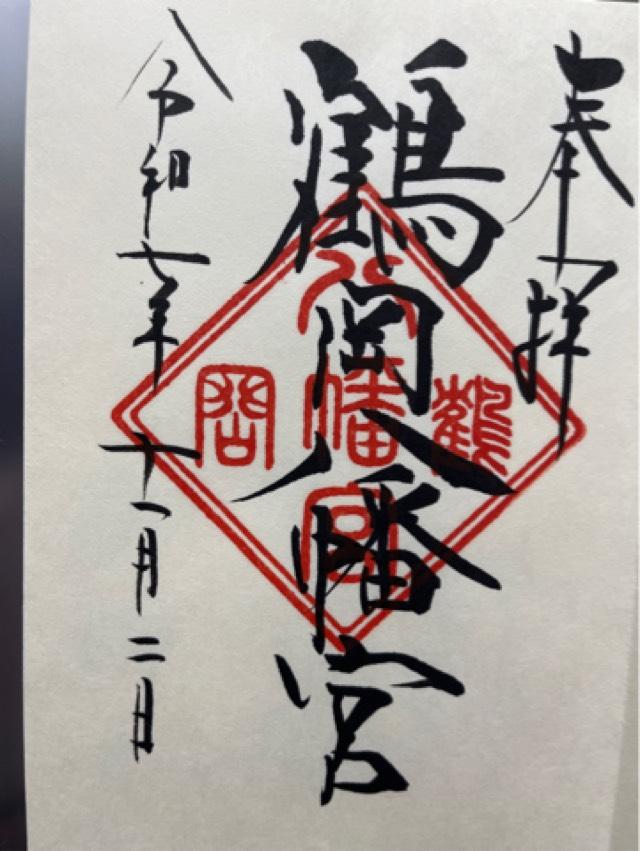 奉拝
鶴岡八幡宮
令和七年十一月二日
鶴
八幡宮
岡